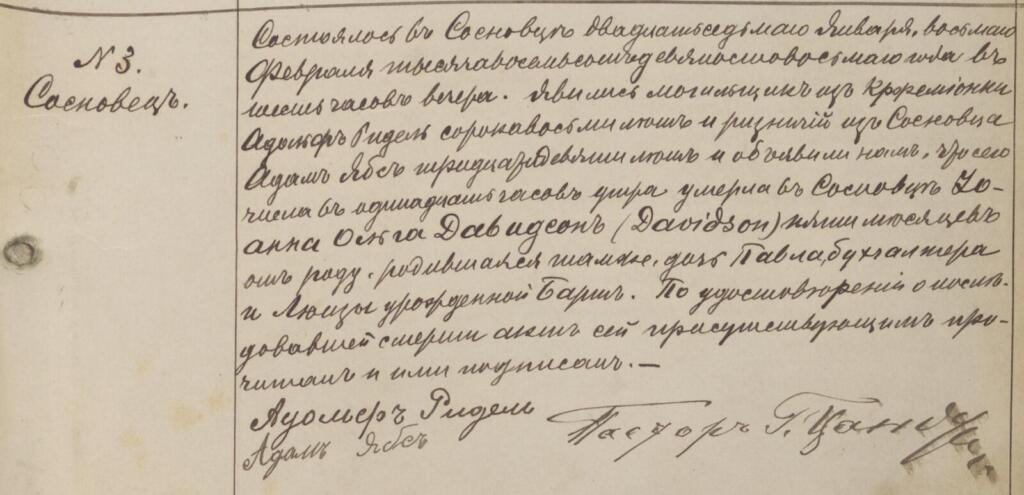 N 3.
Сосновецъ.
Состоялось въ Сосновцѣ двадцатьседьмаго Января, восьмаго
Февраля тысячавосемьсотъдевяностовосьмаго года въ
шесть часовъ вечера. Явились могильщикъ изъ
Адольфъ Ридель сорокавосьми лѣтъ и ризничій изъ Сосновца
Адамъ Ябсъ тридцатидевяти лѣтъ и объявили намъ, что сего
числа въ одинадцать часовъ утра умерла въ Сосновцѣ Іо-
анна Ольга Давидсонъ (Davidson) пяти мѣсяцевъ
отъ роду, родившаяся тамже, дочь Павла, бухгалтера
и Люизы урожденной Бартъ. По удостовѣреніи о послѣ-
довавшей смерти актъ сей присутствующимъ про-
читанъ и ими подписанъ. —
Адольфъ Ридель
Адамъ Ябсъ
Пасторъ Г.